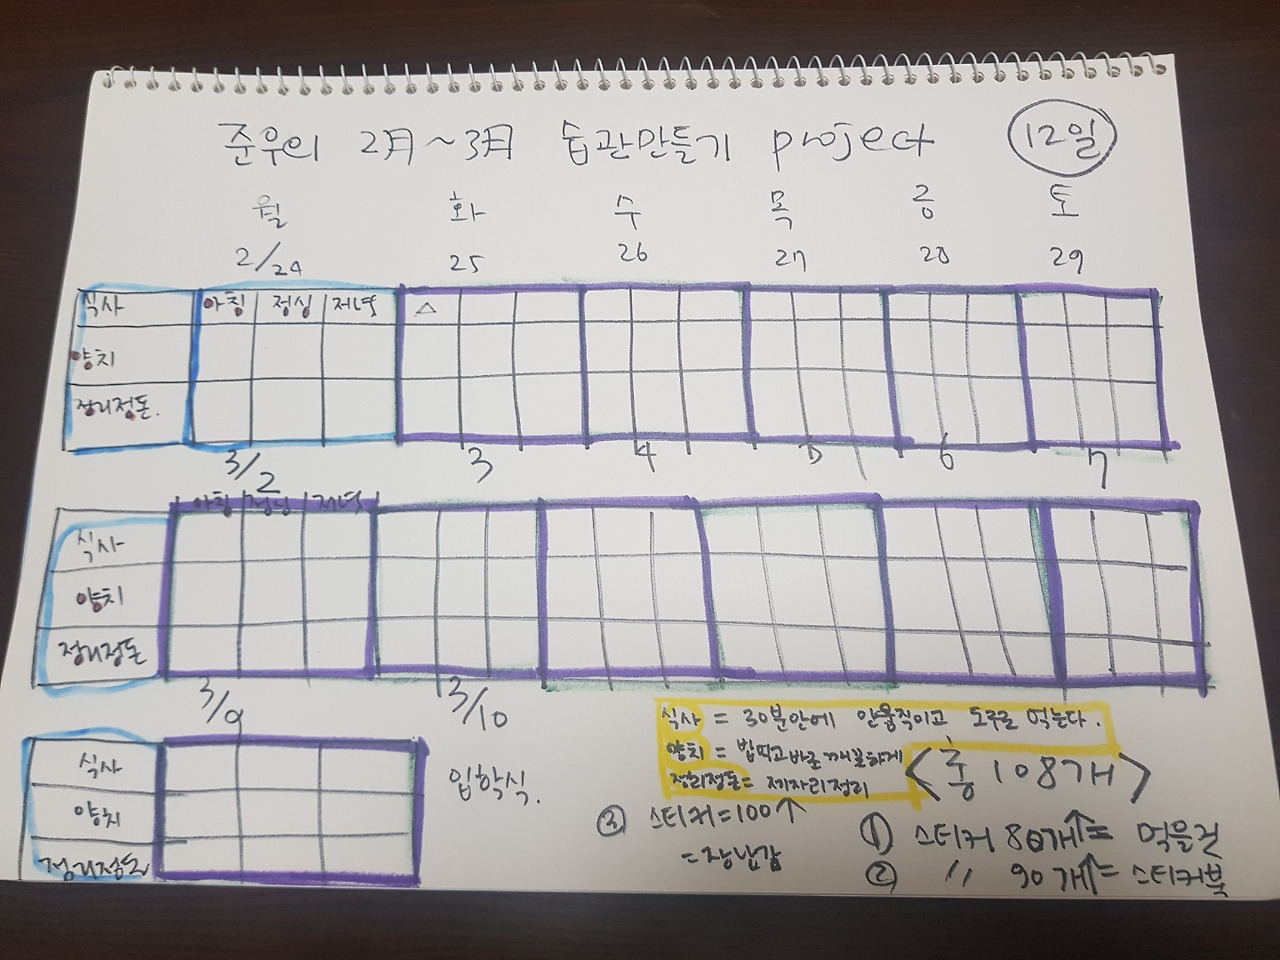 준우의 2月~3月 습관만들기 project 12일
월 화 수 목 금 토
2/24 25 26 27 28 29
식사 아침 점심 저녁 △
양치
정리정돈.
3/2 3 4 5 6 7
아침 점심 저녁
식사
양치
정리정돈
3/9 3/10
식사
양치
정리정돈
입학식.
식사 = 30분안에 안움직이고 도루루 먹는다.
양치 = 밥먹고바로 깨끗하게
정리정돈 = 제자리정리
<총 108개>
① 스티커 80개↑= 먹을것
② 〃 90개↑= 스티커북
③ 스티커=100↑
=장난감